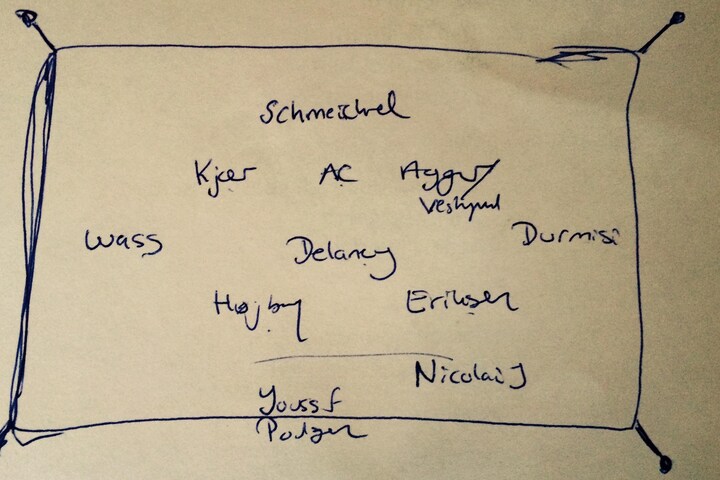 Schmeichel
Kjær AC Agger/
Vestergaard
Wass Delaney Durmisi
Højbjerg Eriksen
Nicolai J
Youssf
Poulsen